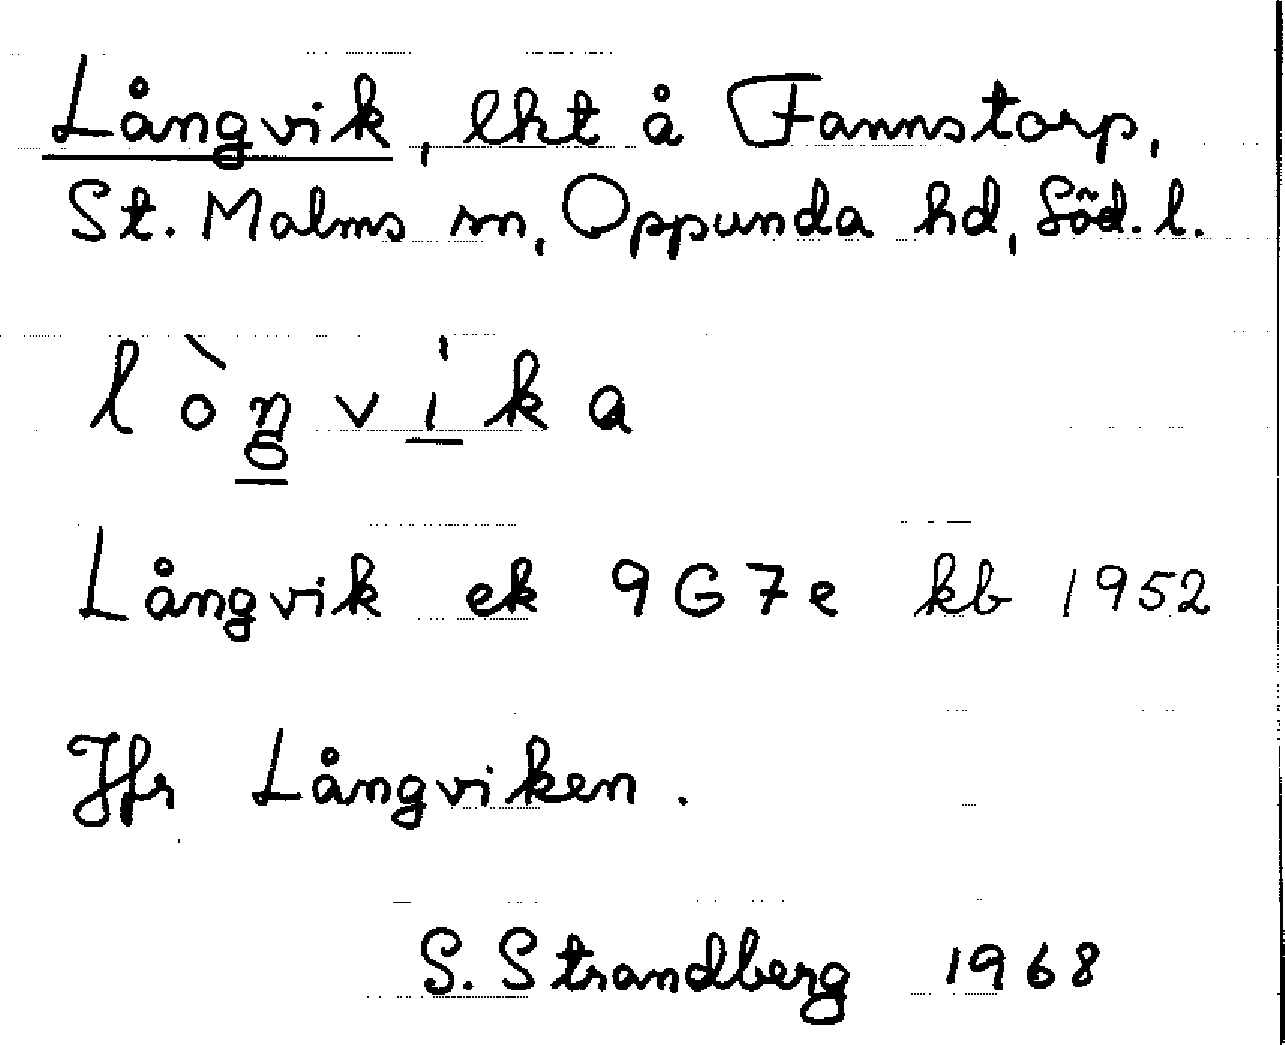 Långvik, lht å Fannstorp,
St. Malms sn, Oppunda hd, Söd. l.
lòŋvika
Långvik ek 9G7e kb 1952
Jfr Långviken.
S. Strandberg 1968